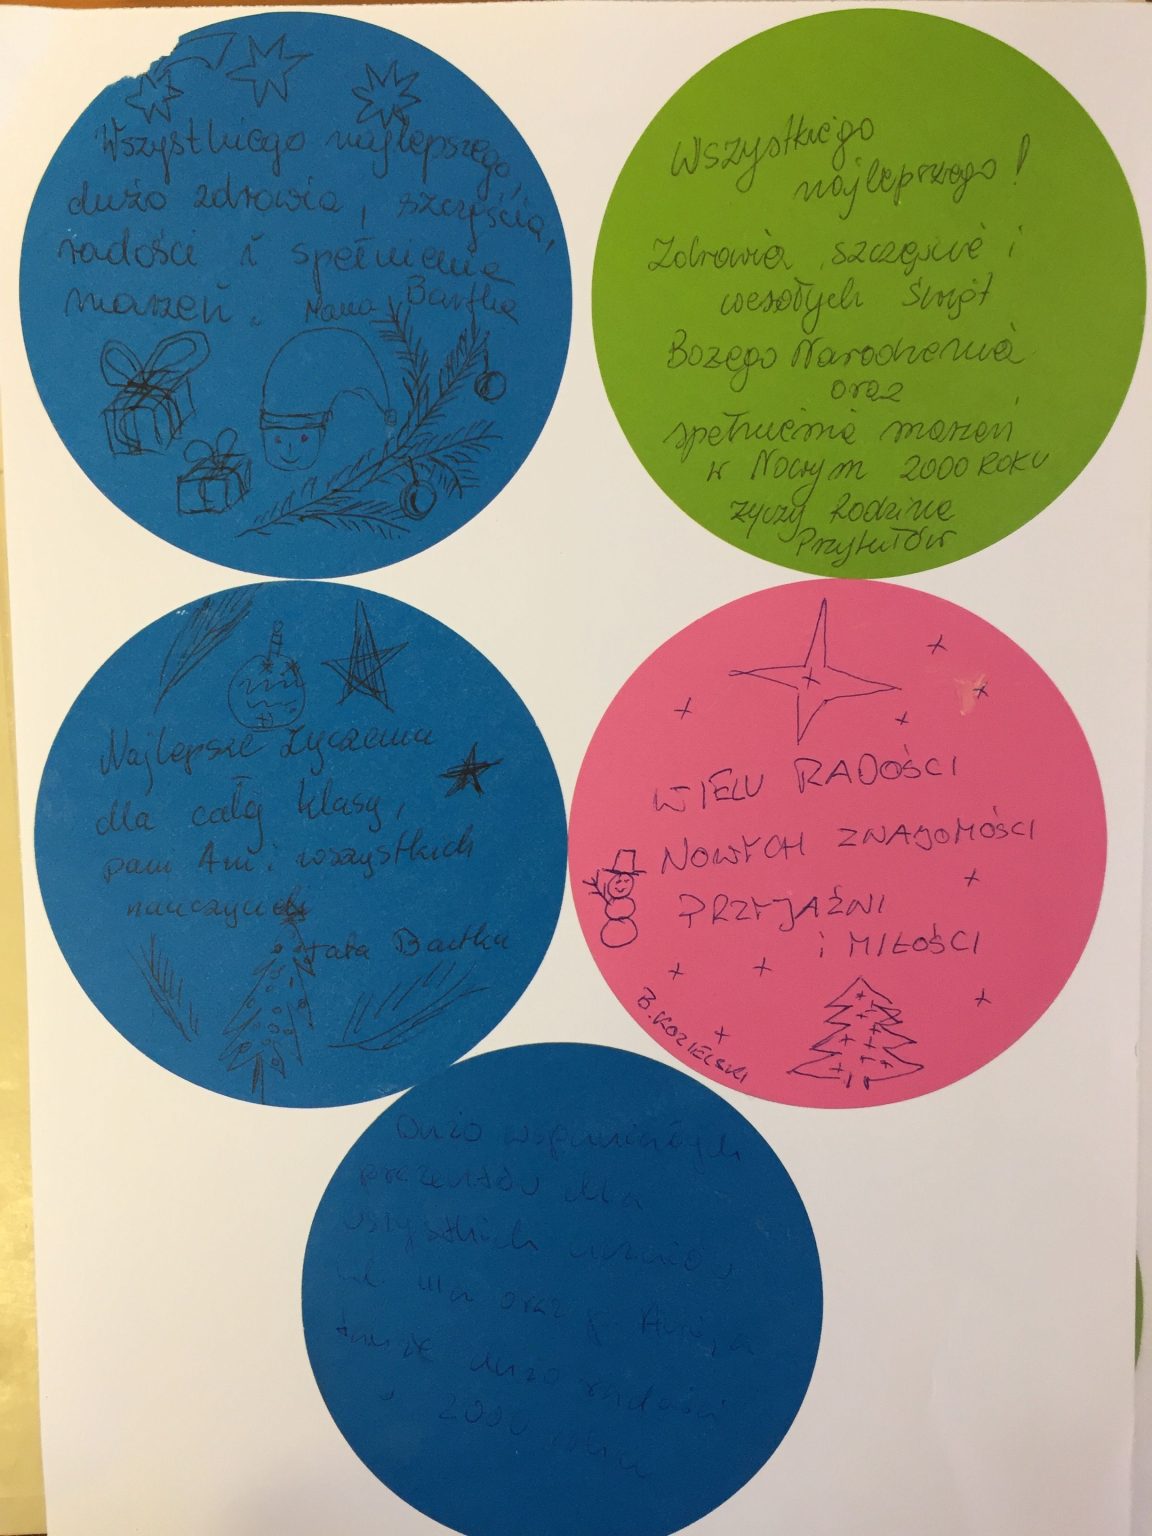 Wszystkiego najlepszego,
dużo zdrowia, szczęścia,
radości i spełnienia
marzeń. Mama Bartka
Wszystkiego
najlepszego!
Zdrowia, szczęścia i
wesołych Świąt
Bożego Narodzenia
oraz
spełnienia marzeń
w Nowym 2000 ROKU
życzy Rodzina
Przytułów
Najlepsze życzenia
dla całej klasy,
pani Ani i wszystkich
nauczycieli
tata Bartka
WIELU RADOŚCI
NOWYCH ZNAJOMOŚCI
PRZYJAŹNI
i MIŁOŚCI
B. KOZIELSKI
Dużo wspaniałych
prezentów dla
wszystkich uczniów
kl. IIIa oraz p. Ani, a
także dużo radości
w 2000 roku